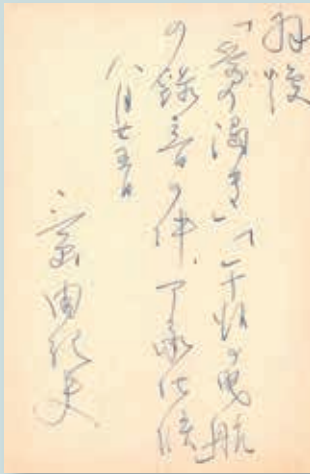 拝復
「愛の渇き」「午後の曳航」
の録音の件、了承仕候
八月廿五日
三島由紀夫